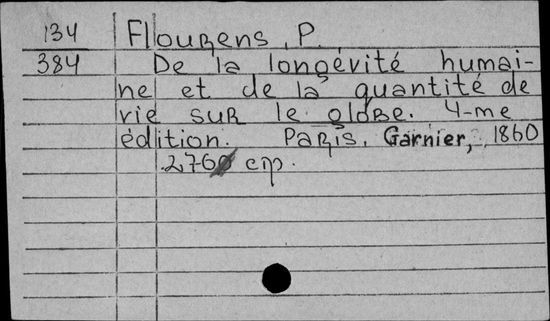 134 Flourens, P.
384 De la longévité humai-
ne et de la quantité de
vie sur le globe. 4-me
édition. Paris, Garnier, 1860
276 стр.